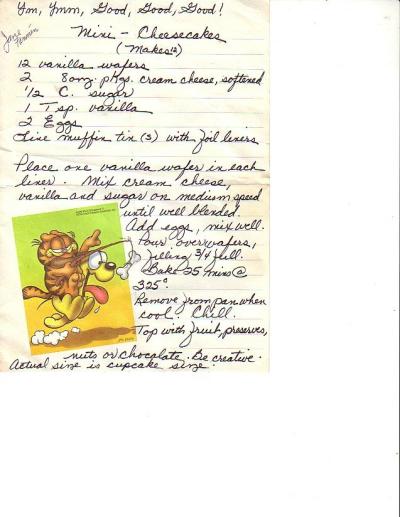 Ym, Ymm, Good, Good, Good!
Mini - Cheesecakes
(Makes 12)
12 vanilla wafers
2 8oz. pkgs. cream cheese, softened
1/2 C. sugar
1 Tsp. vanilla
2 Eggs
Line muffin tin(s) with foil liners
Place one vanilla wafer in each
liner. Mix cream cheese,
vanilla and sugar on medium speed
until well blended.
Add eggs, mix well.
Pour over wafers,
filling 3/4 full.
Bake 25 mins @
325°.
Remove from pan when
cool. Chill.
Top with fruit, preserves,
nuts or chocolate. Be creative.
Actual size is cupcake size.